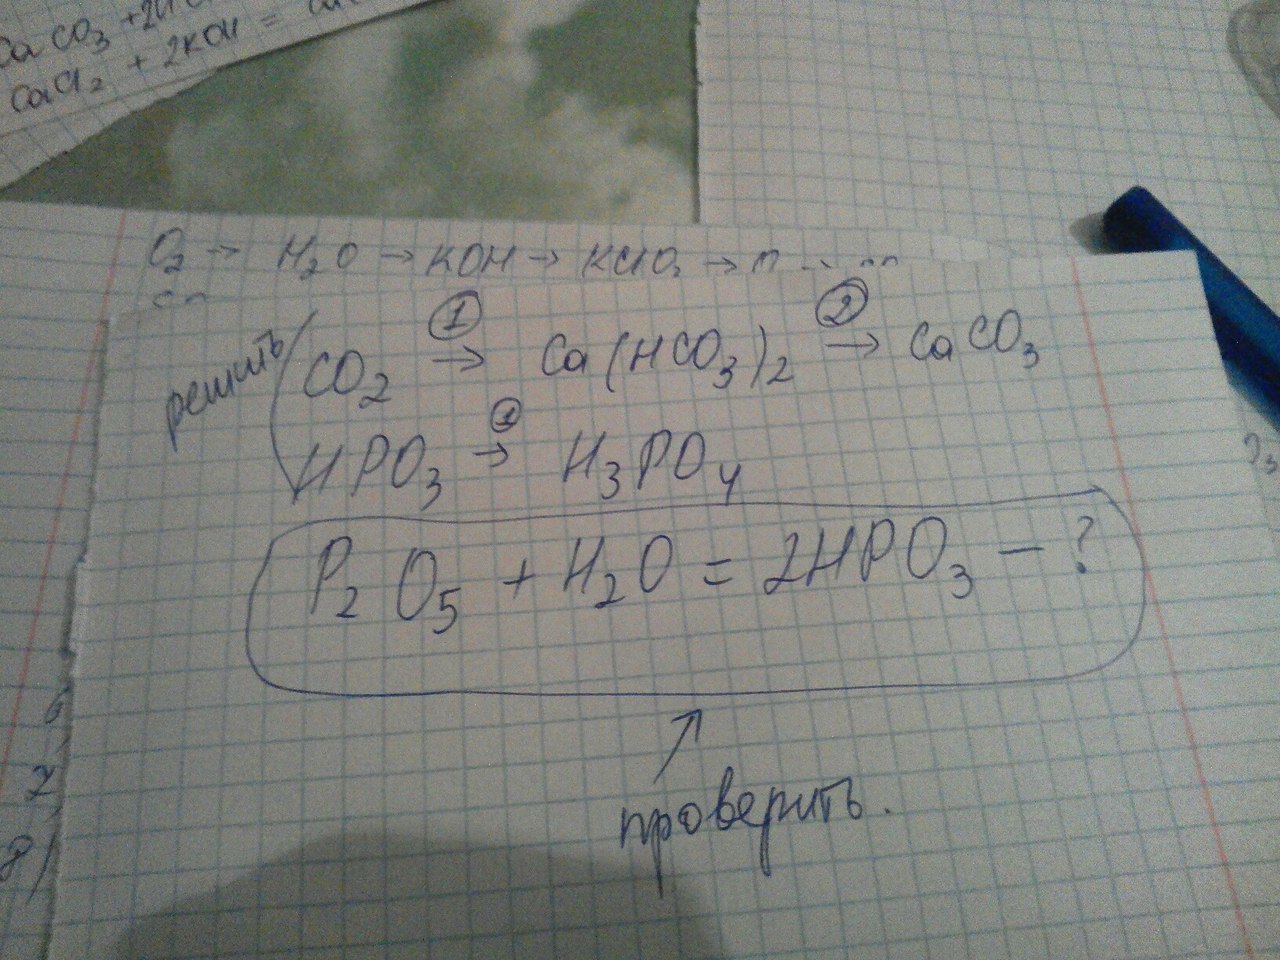 CaCO₃ + 2H
CaCl₂ + 2KOH =
O₂ → H₂O → KOH → KClO₃ →
решить
CO₂ ①→ Ca(HCO₃)₂ ②→ CaCO₃
HPO₃ ①→ H₃PO₄
P₂O₅ + H₂O = 2HPO₃ — ?
проверить.
7
8)